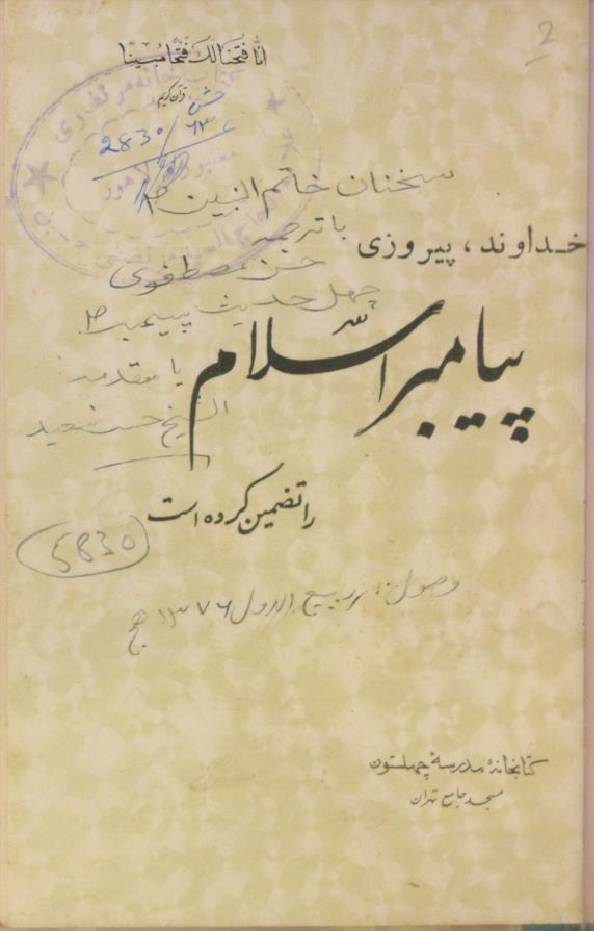 2
انا فتحنا لك فتحا مبينا
قرآن کریم
2830/
سخنان خاتم النبین ص
با ترجمه
خداوند، پیروزی
حسن مصطفوی
چهل حدیث پیمبر ص
پیامبر اسلام
با مقدمه
الشیخ حسن سعید
را تضمین کرده است
5830
وصول: ربیع الاول ۱۳۷۶ هج
کتابخانهٔ مدرسهٔ چهلستون
مسجد جامع تهران